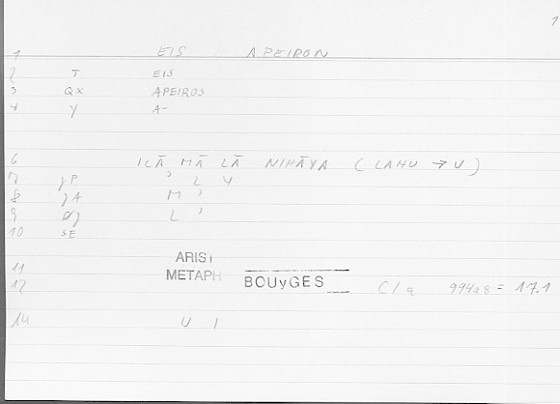 1
1 EIS APEIRON
2 T EIS
3 Qx APEIROS
4 Y A-
6 ILĀ MĀ LĀ NIHĀYA (LAHU → U)
7 JP ʾ L Y
8 JA M ʾ
9 L ʾ
10 SE
11 ARIST
12 METAPH BOUyGES C/a 994a8 = 1.7.1
14 U I